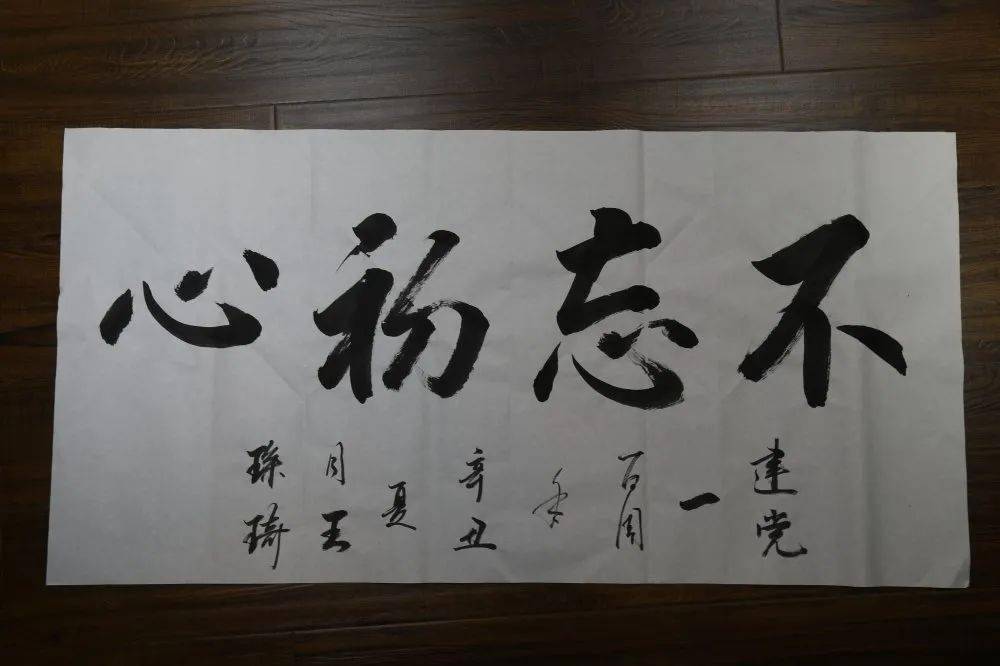 不忘初心
建党
一
百周
年
辛丑
夏
月王
琛琦